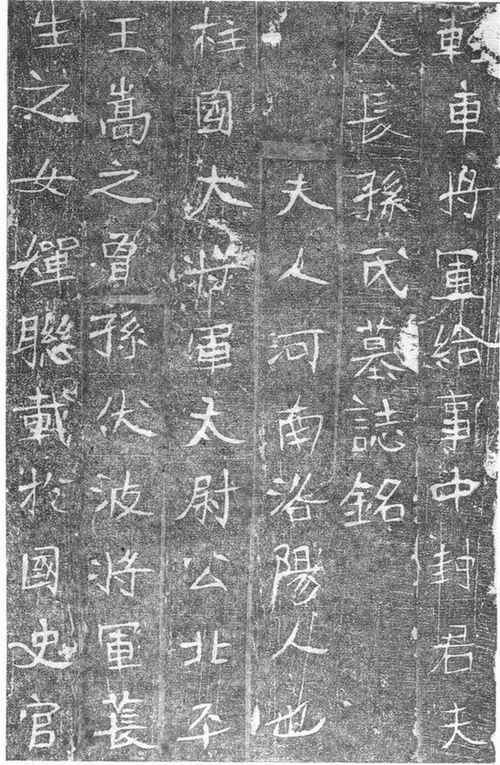 輕車将軍給事中封君夫
人長孫氏墓誌銘
夫人河南洛陽人也
柱國大将軍太尉公北平
王嵩之曾孫伏波將軍萇
生之女嬋聯載於國史官